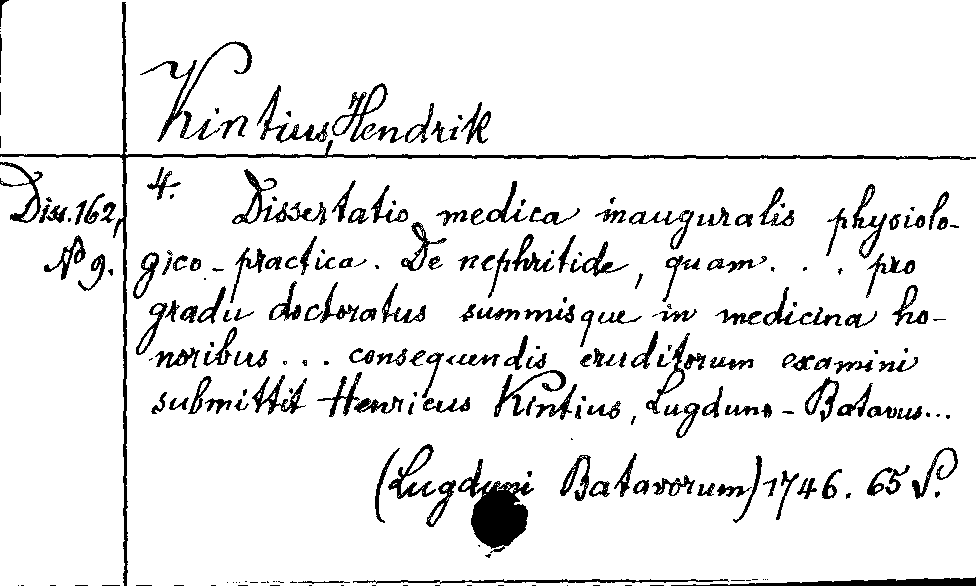 Kintius, Hendrik
Diss. 162,
No 9.
4. Dissertatio medica inauguralis physiolo-
gico-practica. De nephritide, quam... pro
gradu doctoratus summisque in medicina ho-
noribus... consequendis eruditorum examini
submittit Henricus Kintius, Lugduno-Batavus...
(Lugduni Batavorum) 1746. 65 S.